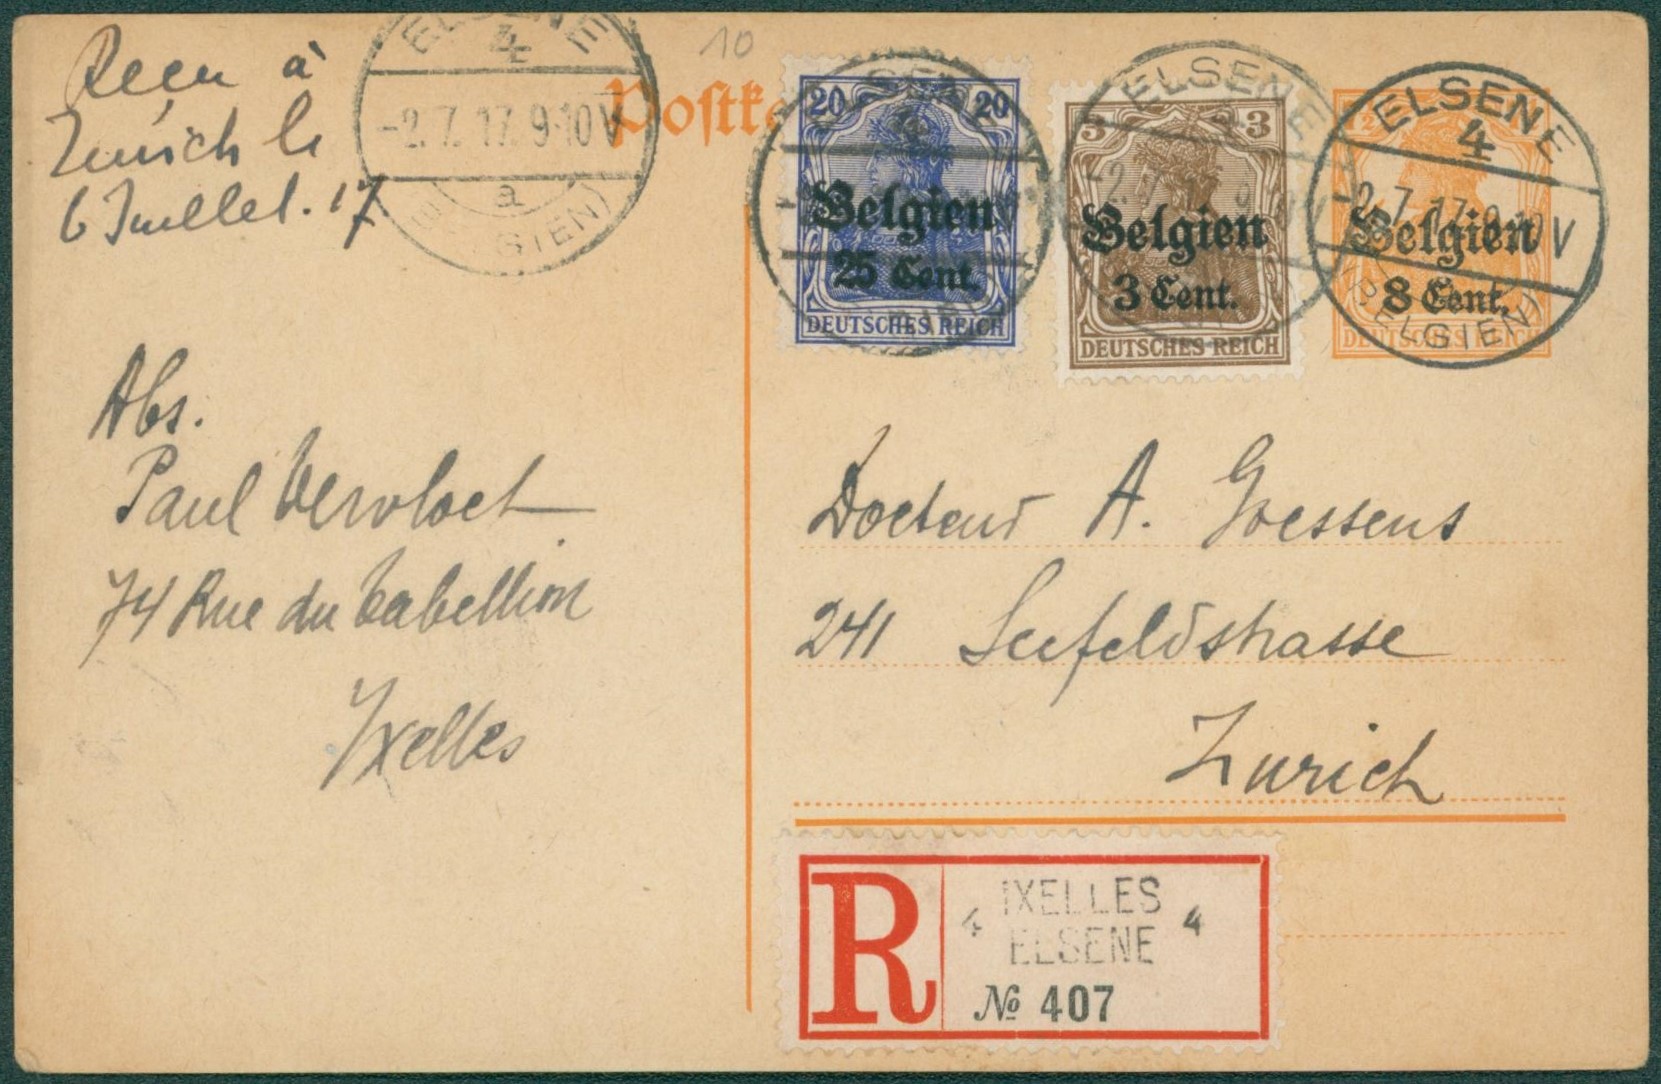 Recu à
Zurich le
6 Juillet. 17
ELSENE
4
-2.7.17.9-10V
a
(BELGIEN)
10
Postka
20 20
Belgien
25 Cent.
DEUTSCHES REICH
ELSENE
3 3
Belgien
3 Cent.
DEUTSCHES REICH
ELSENE
4
-2.7.17.9-10V
Belgien
8 Cent.
(BELGIEN)
DEUTSCHES REICH
Abs.
Paul Vervloet
74 Rue du Tabellion
Ixelles
Docteur A. Goessens
241 Seefeldstrasse
Zurich
R
4 IXELLES 4
ELSENE
№ 407